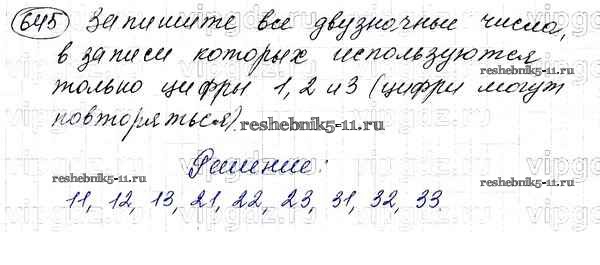 645 Запишите все двузначные числа,
в записи которых используются
только цифры 1, 2 и 3 (цифры могут
повторяться).
reshebnik5-11.ru
Решение:
reshebnik5-11.ru reshebnik5-11.ru
11, 12, 13, 21, 22, 23, 31, 32, 33